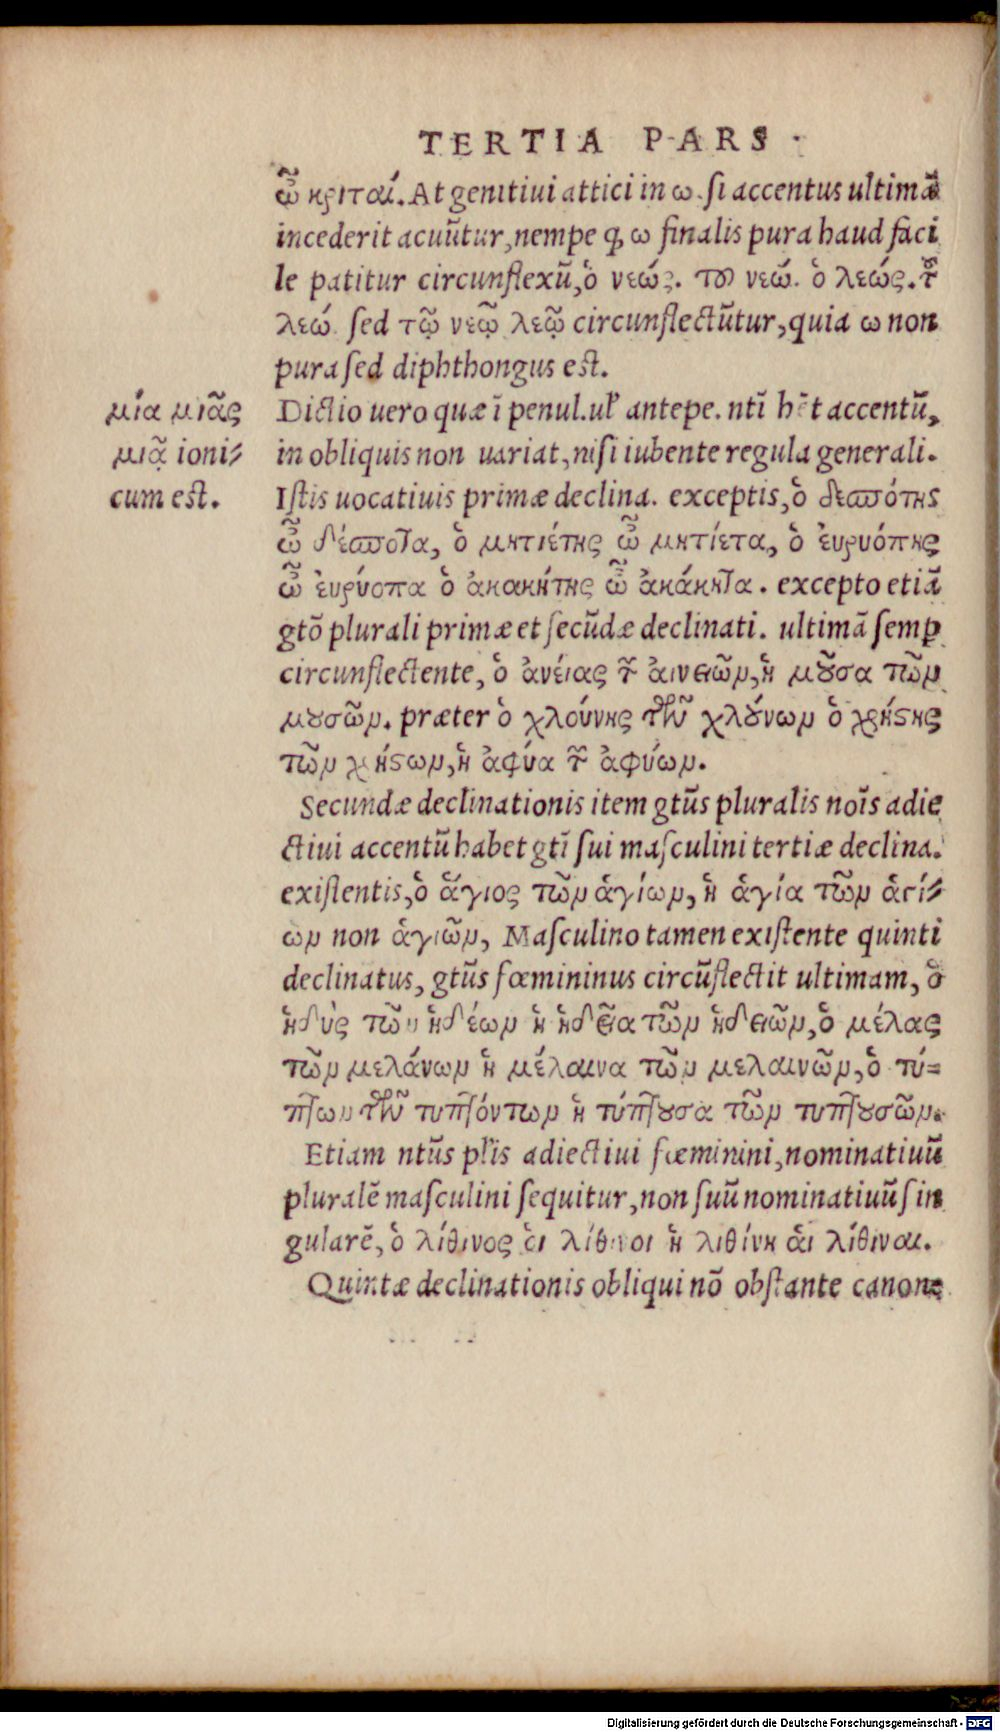 TERTIA PARS.
ὦ κριταί. At genitiui attici in ω. si accentus ultimã
incederit acuũtur, nempe ꝙ ω finalis pura haud faci
le patitur circunflexũ, ὁ νεώς. του νεώ. ὁ λεώς. τȣ͂
λεώ. sed τῷ νεῷ λεῷ circunflectũtur, quia ω non
pura sed diphthongus est.
μία μιᾶς
μιᾷ ioni⸗
cum est.
Dictio uero quæ ĩ penul. ul' antepe. ntĩ hẽt accentũ,
in obliquis non uariat, nisi iubente regula generali.
Istis uocatiuis primæ declina. exceptis, ὁ δεσπότης
ὦ δέσποτα, ὁ μητιέτης ὦ μητίετα, ὁ ἐυρυόπης
ὦ ἐυρύοπα ὁ ἀκακήτης ὦ ἀκάκητα. excepto etiã
gtõ plurali primæ et secũdæ declinati. ultimã semꝑ
circunflectente, ὁ ἀνείας τῶν ἀινειῶν, ἡ μȣ͂σα τῶν
μȣσῶν. præter ὁ χλούνης τῶν χλȣ́νων ὁ χρήστης
τῶν χρήστων, ἡ ἀφύα τῶν ἀφύων.
Secundæ declinationis item gtũs pluralis noĩs adie
ctiui accentũ habet gtĩ sui masculini tertiæ declina.
existentis, ὁ ἅγιος τῶν ἁγίων, ἡ ἁγία τῶν ἁγί⸗
ων non ἁγιῶν, Masculino tamen existente quinti
declinatus, gtũs fœmininus circũflectit ultimam, ὁ
ἡδὺς τῶν ἡδέων ἡ ἡδεῖα τῶν ἡδειῶν, ὁ μέλας
τῶν μελάνων ἡ μέλαινα τῶν μελαινῶν, ὁ τύ⸗
πτων τῶν τυπτόντων ἡ τύπτȣσα τῶν τυπτȣσῶν.
Etiam ntũs pl'is adiectiui fœminini, nominatiuũ
pluralẽ masculini sequitur, non suũ nominatiuũ sin
gularẽ, ὁ λίθινος ὁι λίθινοι ἡ λιθίνη ἁι λίθιναι.
Quintæ declinationis obliqui nõ obstante canone
Digitalisierung gefördert durch die Deutsche Forschungsgemeinschaft - DFG